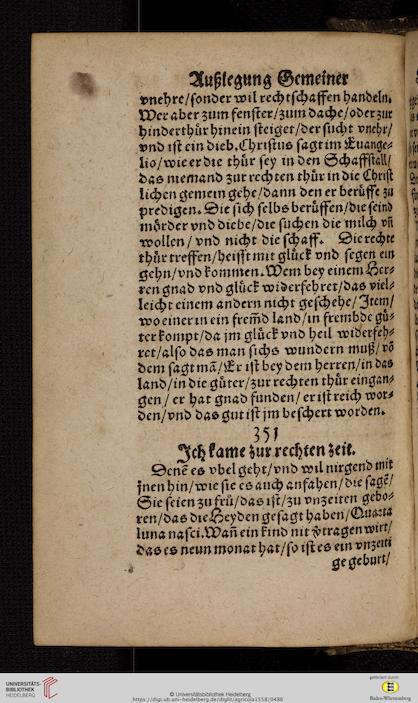 Außlegung Gemeiner
vnehre/sonder wil rechtschaffen handeln.
Wer aber zum fenster/zum dache/oder zur
hinderthür hinein steiget/der sucht vnehr/
vnd ist ein dieb. Christus sagt im Euange-
lio/wie er die thür sey in den Schaffstall/
das niemand zur rechten thür in die Christ
lichen gemein gehe/dann den er berüffe zu
predigen. Die sich selbs berüffen/die seind
mörder vnd diebe/die suchen die milch vñ
wollen/ vnd nicht die schaff. Die rechte
thür treffen/heisst mit glück vnd segen ein
gehn/vnd kommen. Wem bey einem Her-
ren gnad vnd glück widerfehret/das viel-
leicht einem andern nicht geschehe/ Item/
wo einer in ein fremd land/in frembde gü-
ter kompt/da jm glück vnd heil widerfeh-
ret/also das man sichs wundern muß/ võ
dem sagt mã/Er ist bey dem herren/in das
land/in die güter/zur rechten thür eingan-
gen/ er hat gnad funden/ er ist reich wor-
den/vnd das gut ist jm beschert worden.
351
Ich kame zur rechten zeit.
Denẽ es vbel geht/vnd wil nirgend mit
jnen hin/wie sie es auch anfahen/die sagẽ/
Sie seien zu frü/das ist/zu vnzeiten gebo-
ren/das die Heyden gesagt haben/Quarta
luna nasci. Wañ ein kind nit v̉tragen wirt/
das es neun monat hat/so ist es ein vnzeiti
ge geburt/
UNIVERSITÄTS-
BIBLIOTHEK
HEIDELBERG
© Universitätsbibliothek Heidelberg
https://digi.ub.uni-heidelberg.de/diglit/agricola1558/0486
gefördert durch
Baden-Württemberg